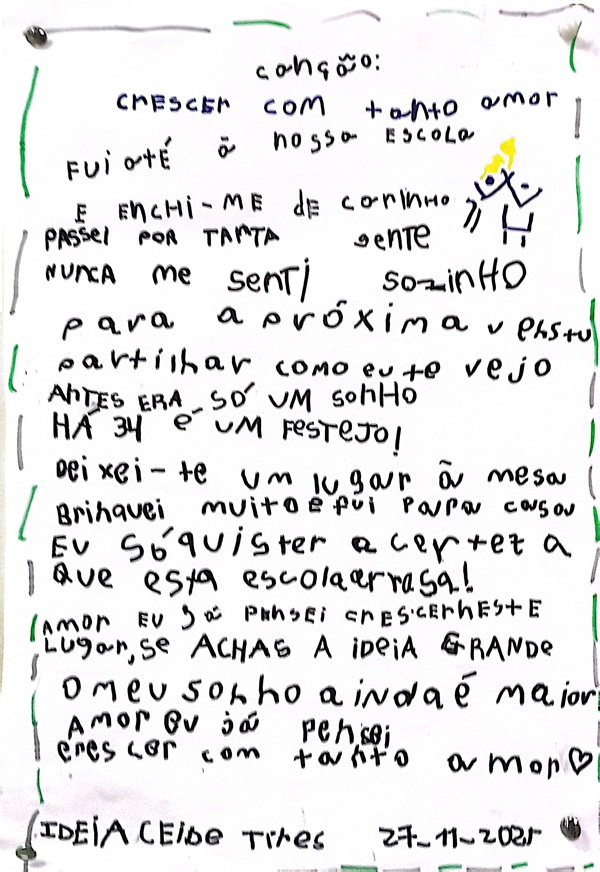 canção:
CRESCER COM tanto amor
FUI até à nossa ESCOLA
E ENCHI-ME DE carinho
PASSEI POR TANTA gENTE
NUNCA me SENTI SOzinHO
para a próxima vens tu
partilhar como eu te vejo
ANTES ERA SÓ UM SONHO
HÁ 34 É UM FESTEJO!
Deixei-te um lugar à mesa
Brinquei muito e fui para casa
EU Só quis ter a certeza
Que esta escola arrasa!
AMOR EU Já PENSEI CRESCER NESTE
Lugar, SE ACHAS A iDEiA GRANDE
O meu sonho ainda é maior
AMOR eu já pensei
crescer com tanto amor
IDEIA CEIbe